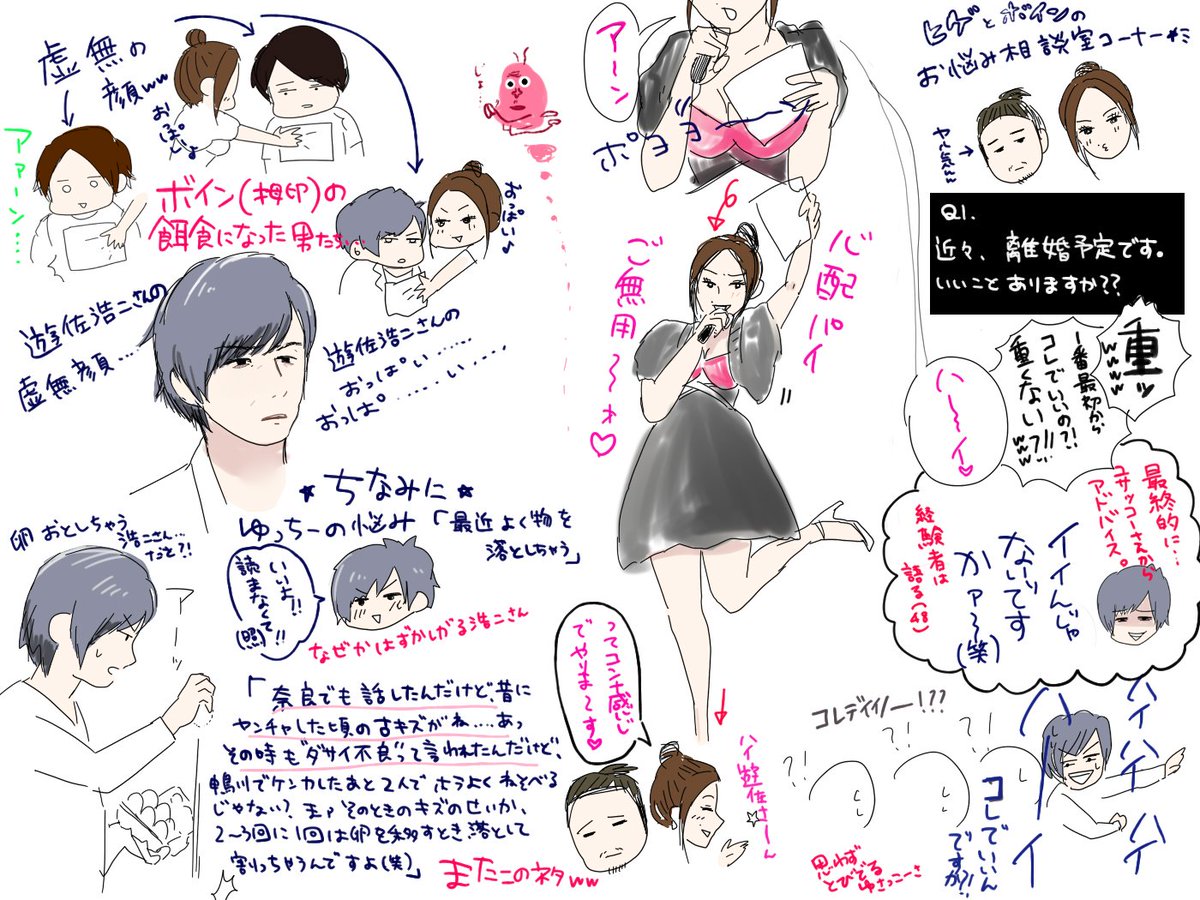 ヒゲとボインの
お悩み相談室コーナー
ヤル気
Q1.
近々、離婚予定です。
いいことありますか??
重ッ
wwww
1番最初から
コレでいいの?!
重くないw?!!
ハーイ♡
最終的に…
ユサッコーさんから
アドバイス。
イイんじゃ
ないッです
かァ〜(笑)
経験者は
語る(48)
ハイハイハイ
ハーイ
コレでいいん
ですか?!
コレデイイノー!??
?!
?!
?!
思わず
とびでる
ゆさっこーさ
アーン
ポヨヨーン
心配パイ
ご無用〜ォ♡
ってコンナ感じ
でやりま〜す♡
ハイ遊佐さーん
虚無の
顔ww
おっぱしょ
アァーン…
ボイン(栂印)の
餌食になった男たち…
おっぱい♪
遊佐浩二さんの
虚無顔……
遊佐浩二さんの
おっぱい……
おっぱ……い…
★ちなみに★
ゆっちーの悩み「最近よく物を
落としちゃう」
いいよ!!
読まなくて!!
(照)
なぜかはずかしがる浩二さん
卵おとしちゃう
浩二さん…
だと?!
ア
「奈良でも話したんだけど昔に
ヤンチャした頃の古キズがね……あっ
その時も"ダサイ不良"って言われたんだけど、
鴨川でケンカしたあと2人でホラよくねそべる
じゃない?まァそのときのキズのせいか、
2〜3回に1回は卵を移すとき落として
割っちゃうんですよ(笑)」
またこのネタww